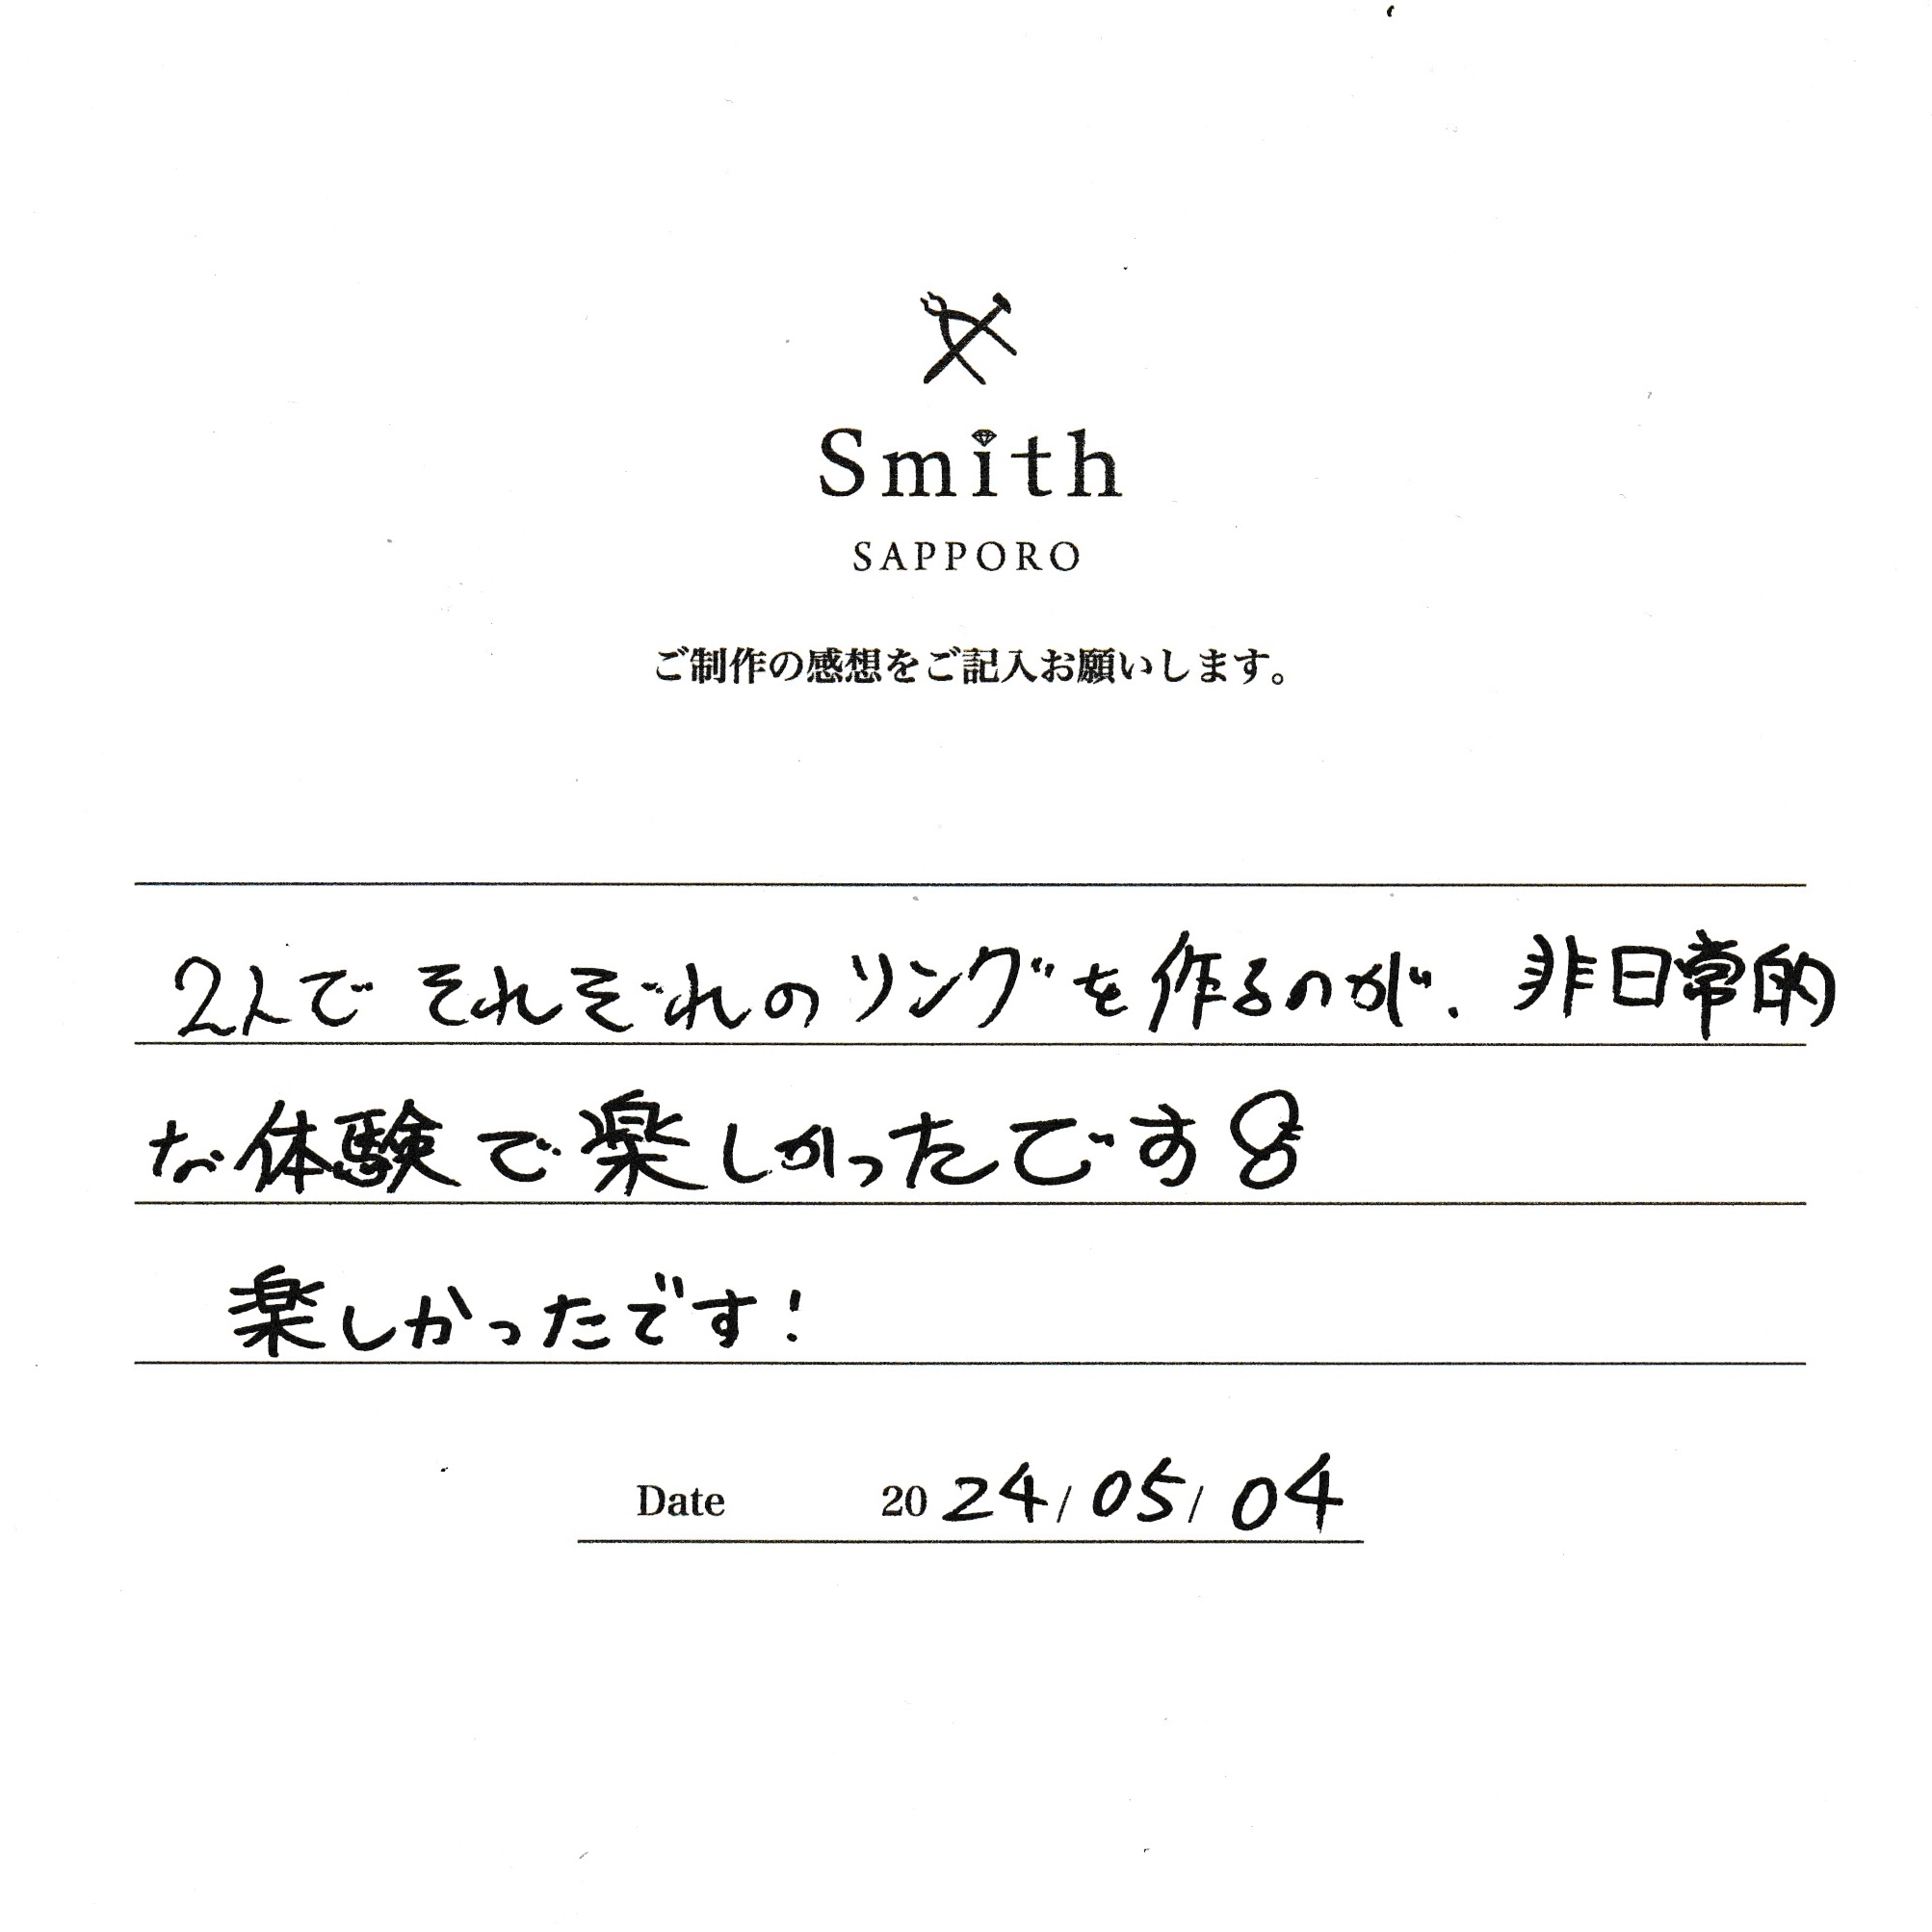 Smith
SAPPORO
ご制作の感想をご記入お願いします。
2人でそれぞれのリングを作るのが、非日常的
な体験で楽しかったです
楽しかったです!
Date 2024/05/04